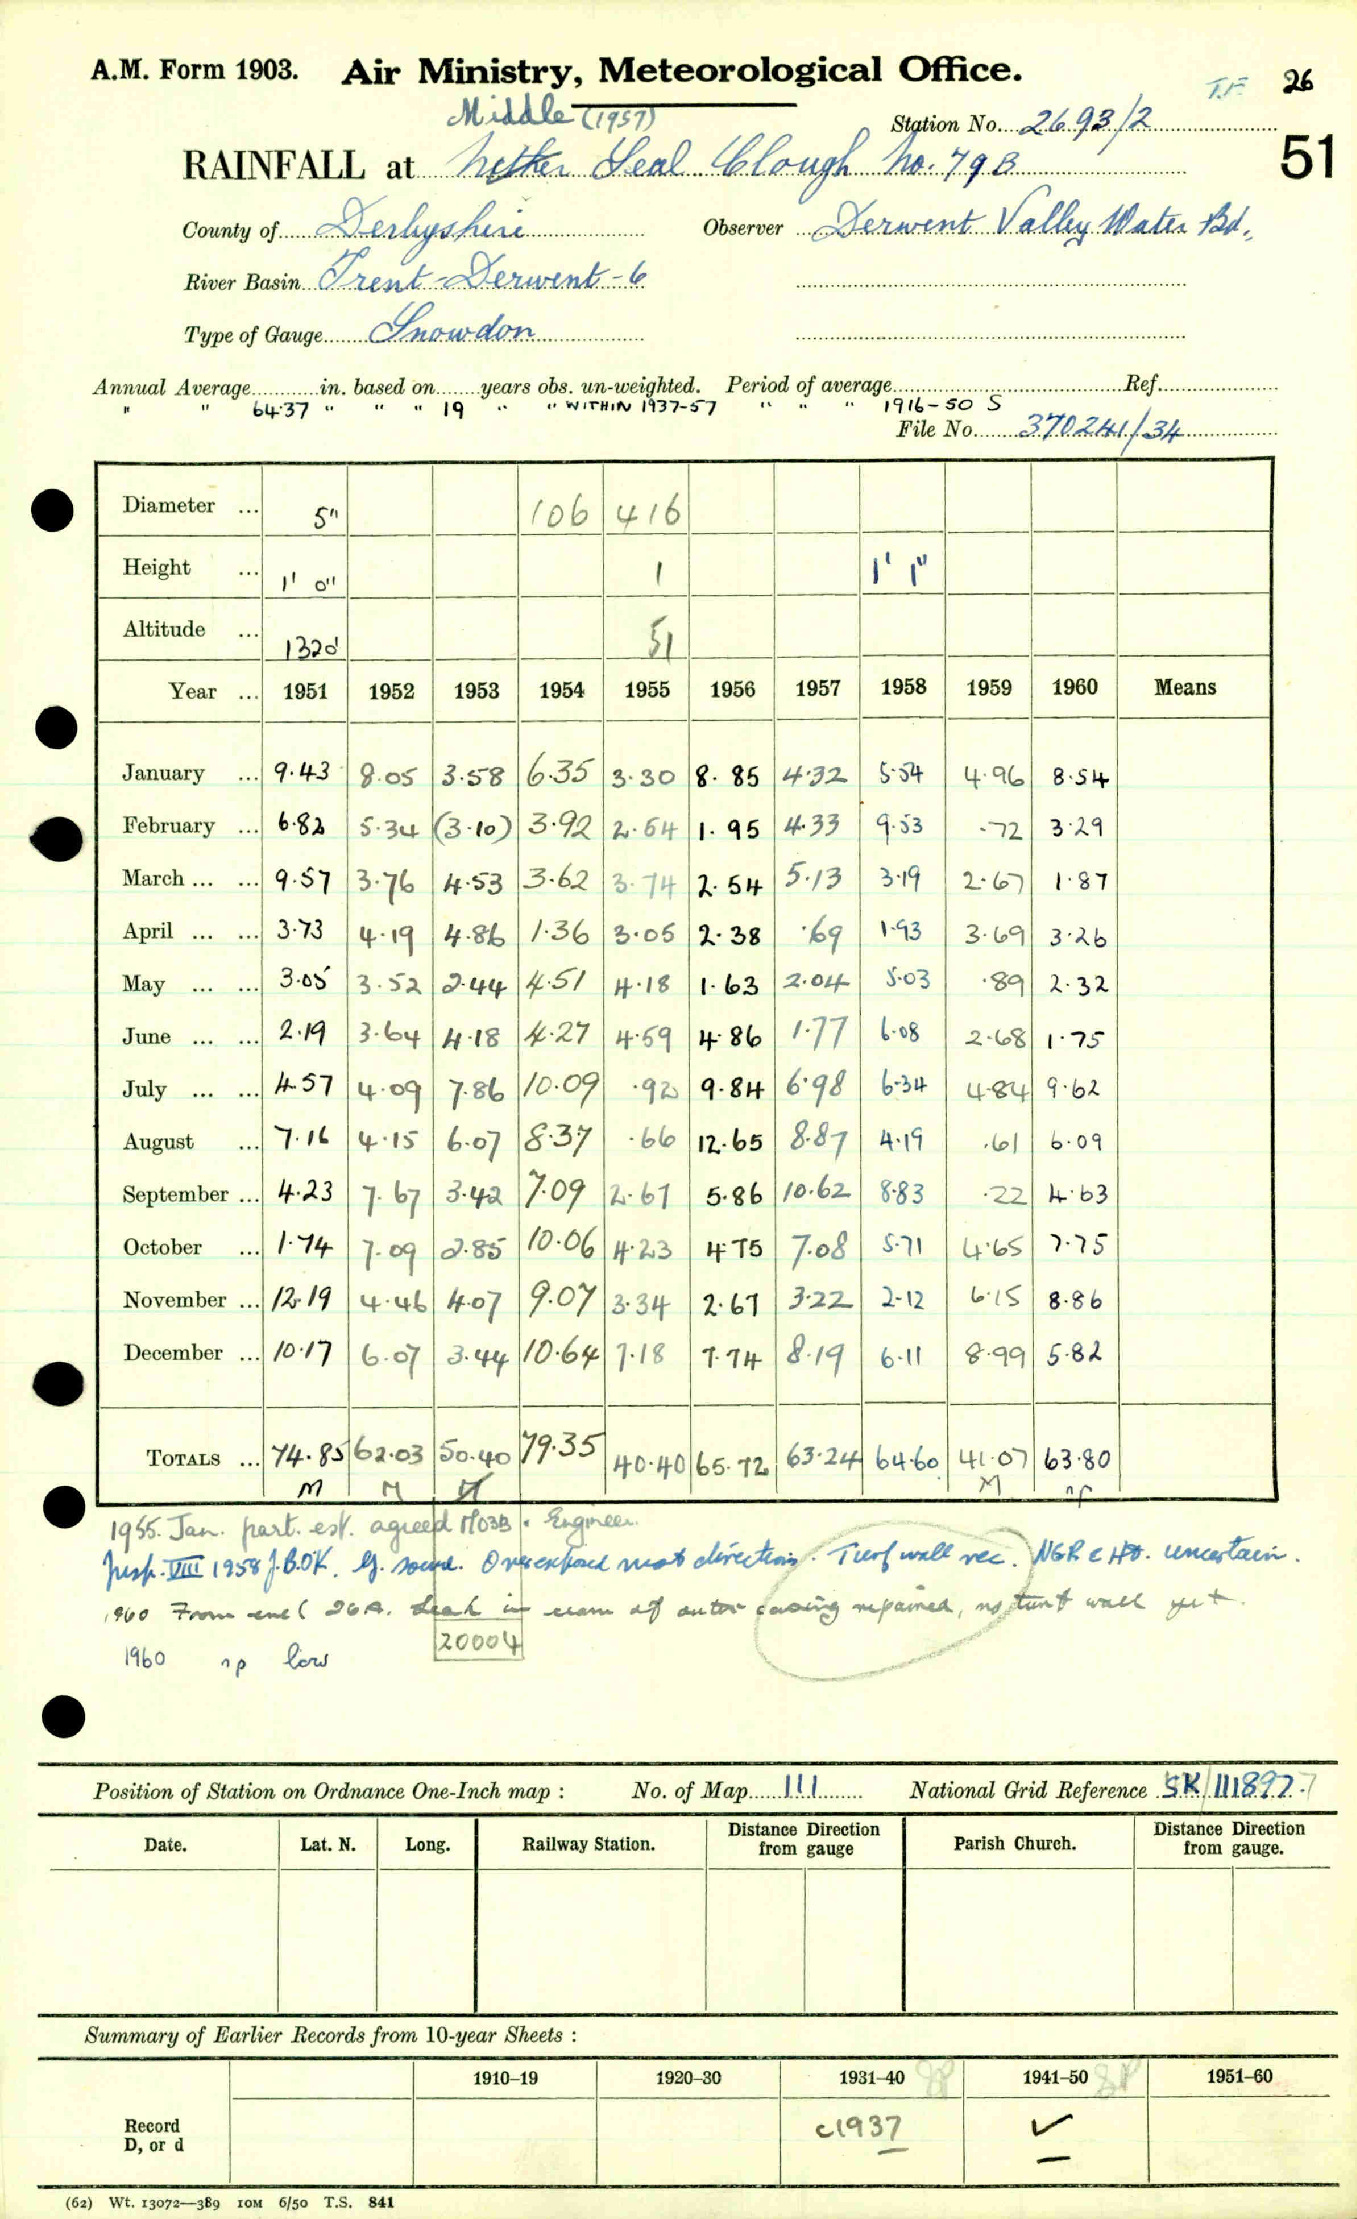 A.M. Form 1903. Air Ministry, Meteorological Office.
T.F. 26
Middle (1957)
Station No. 2693/2
51
RAINFALL at Nether Seal Clough No. 79B
County of Derbyshire Observer Derwent Valley Water Bd,
River Basin Trent - Derwent - 6
Type of Gauge Snowdon
Annual Average in. based on years obs. un-weighted. Period of average Ref.
" " 64.37 " " " 19 " " WITHIN 1937-57 " " " 1916-50 S
File No. 370241/34
Diameter ... 5" 106 416
Height ... 1' 0" 1 1' 1"
Altitude ... 1320' 51
Year ... 1951 1952 1953 1954 1955 1956 1957 1958 1959 1960 Means
January ... 9.43 8.05 3.58 6.35 3.30 8.85 4.32 5.54 4.96 8.54
February ... 6.82 5.34 (3.10) 3.92 2.54 1.95 4.33 9.53 .72 3.29
March ... ... 9.57 3.76 4.53 3.62 3.74 2.54 5.13 3.19 2.67 1.87
April ... ... 3.73 4.19 4.86 1.36 3.05 2.38 .69 1.93 3.69 3.26
May ... ... 3.05 3.52 2.44 4.51 4.18 1.63 2.04 5.03 .89 2.32
June ... ... 2.19 3.64 4.18 4.27 4.59 4.86 1.77 6.08 2.68 1.75
July ... ... 4.57 4.09 7.86 10.09 .92 9.84 6.98 6.34 4.84 9.62
August ... 7.16 4.15 6.07 8.37 .66 12.65 8.87 4.19 .61 6.09
September ... 4.23 7.67 3.42 7.09 2.67 5.86 10.62 8.83 .22 4.63
October ... 1.74 7.09 2.85 10.06 4.23 4.75 7.08 5.71 4.65 7.75
November ... 12.19 4.46 4.07 9.07 3.34 2.67 3.22 2.12 6.15 8.86
December ... 10.17 6.07 3.44 10.64 7.18 7.74 8.19 6.11 8.99 5.82
TOTALS ... 74.85 62.03 50.40 79.35 40.40 65.72 63.24 64.60 41.07 63.80
M M M M np
1955. Jan. part. est. agreed MO3B. Engineer.
Insp. VIII 1958 J.B.OK. G. sound. Overexposed most directions. Turf wall rec. NGR & Ht. uncertain.
1960 From encl 26A. Leak in seam of outer casing repaired, no turf wall yet.
20004
1960 np low
Position of Station on Ordnance One-Inch map : No. of Map 111 National Grid Reference SK 111897
Date. Lat. N. Long. Railway Station. Distance from Direction gauge Parish Church. Distance from Direction gauge.
Summary of Earlier Records from 10-year Sheets :
1910–19 1920–30 1931–40 1941–50 1951–60
Record
D, or d
c1937 ✓
(62) Wt. 13072—3B9 10M 6/50 T.S. 841